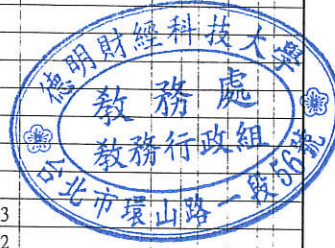 德明財經科技大學
教務處
教務行政組
台北市環山路一段56號
3
2